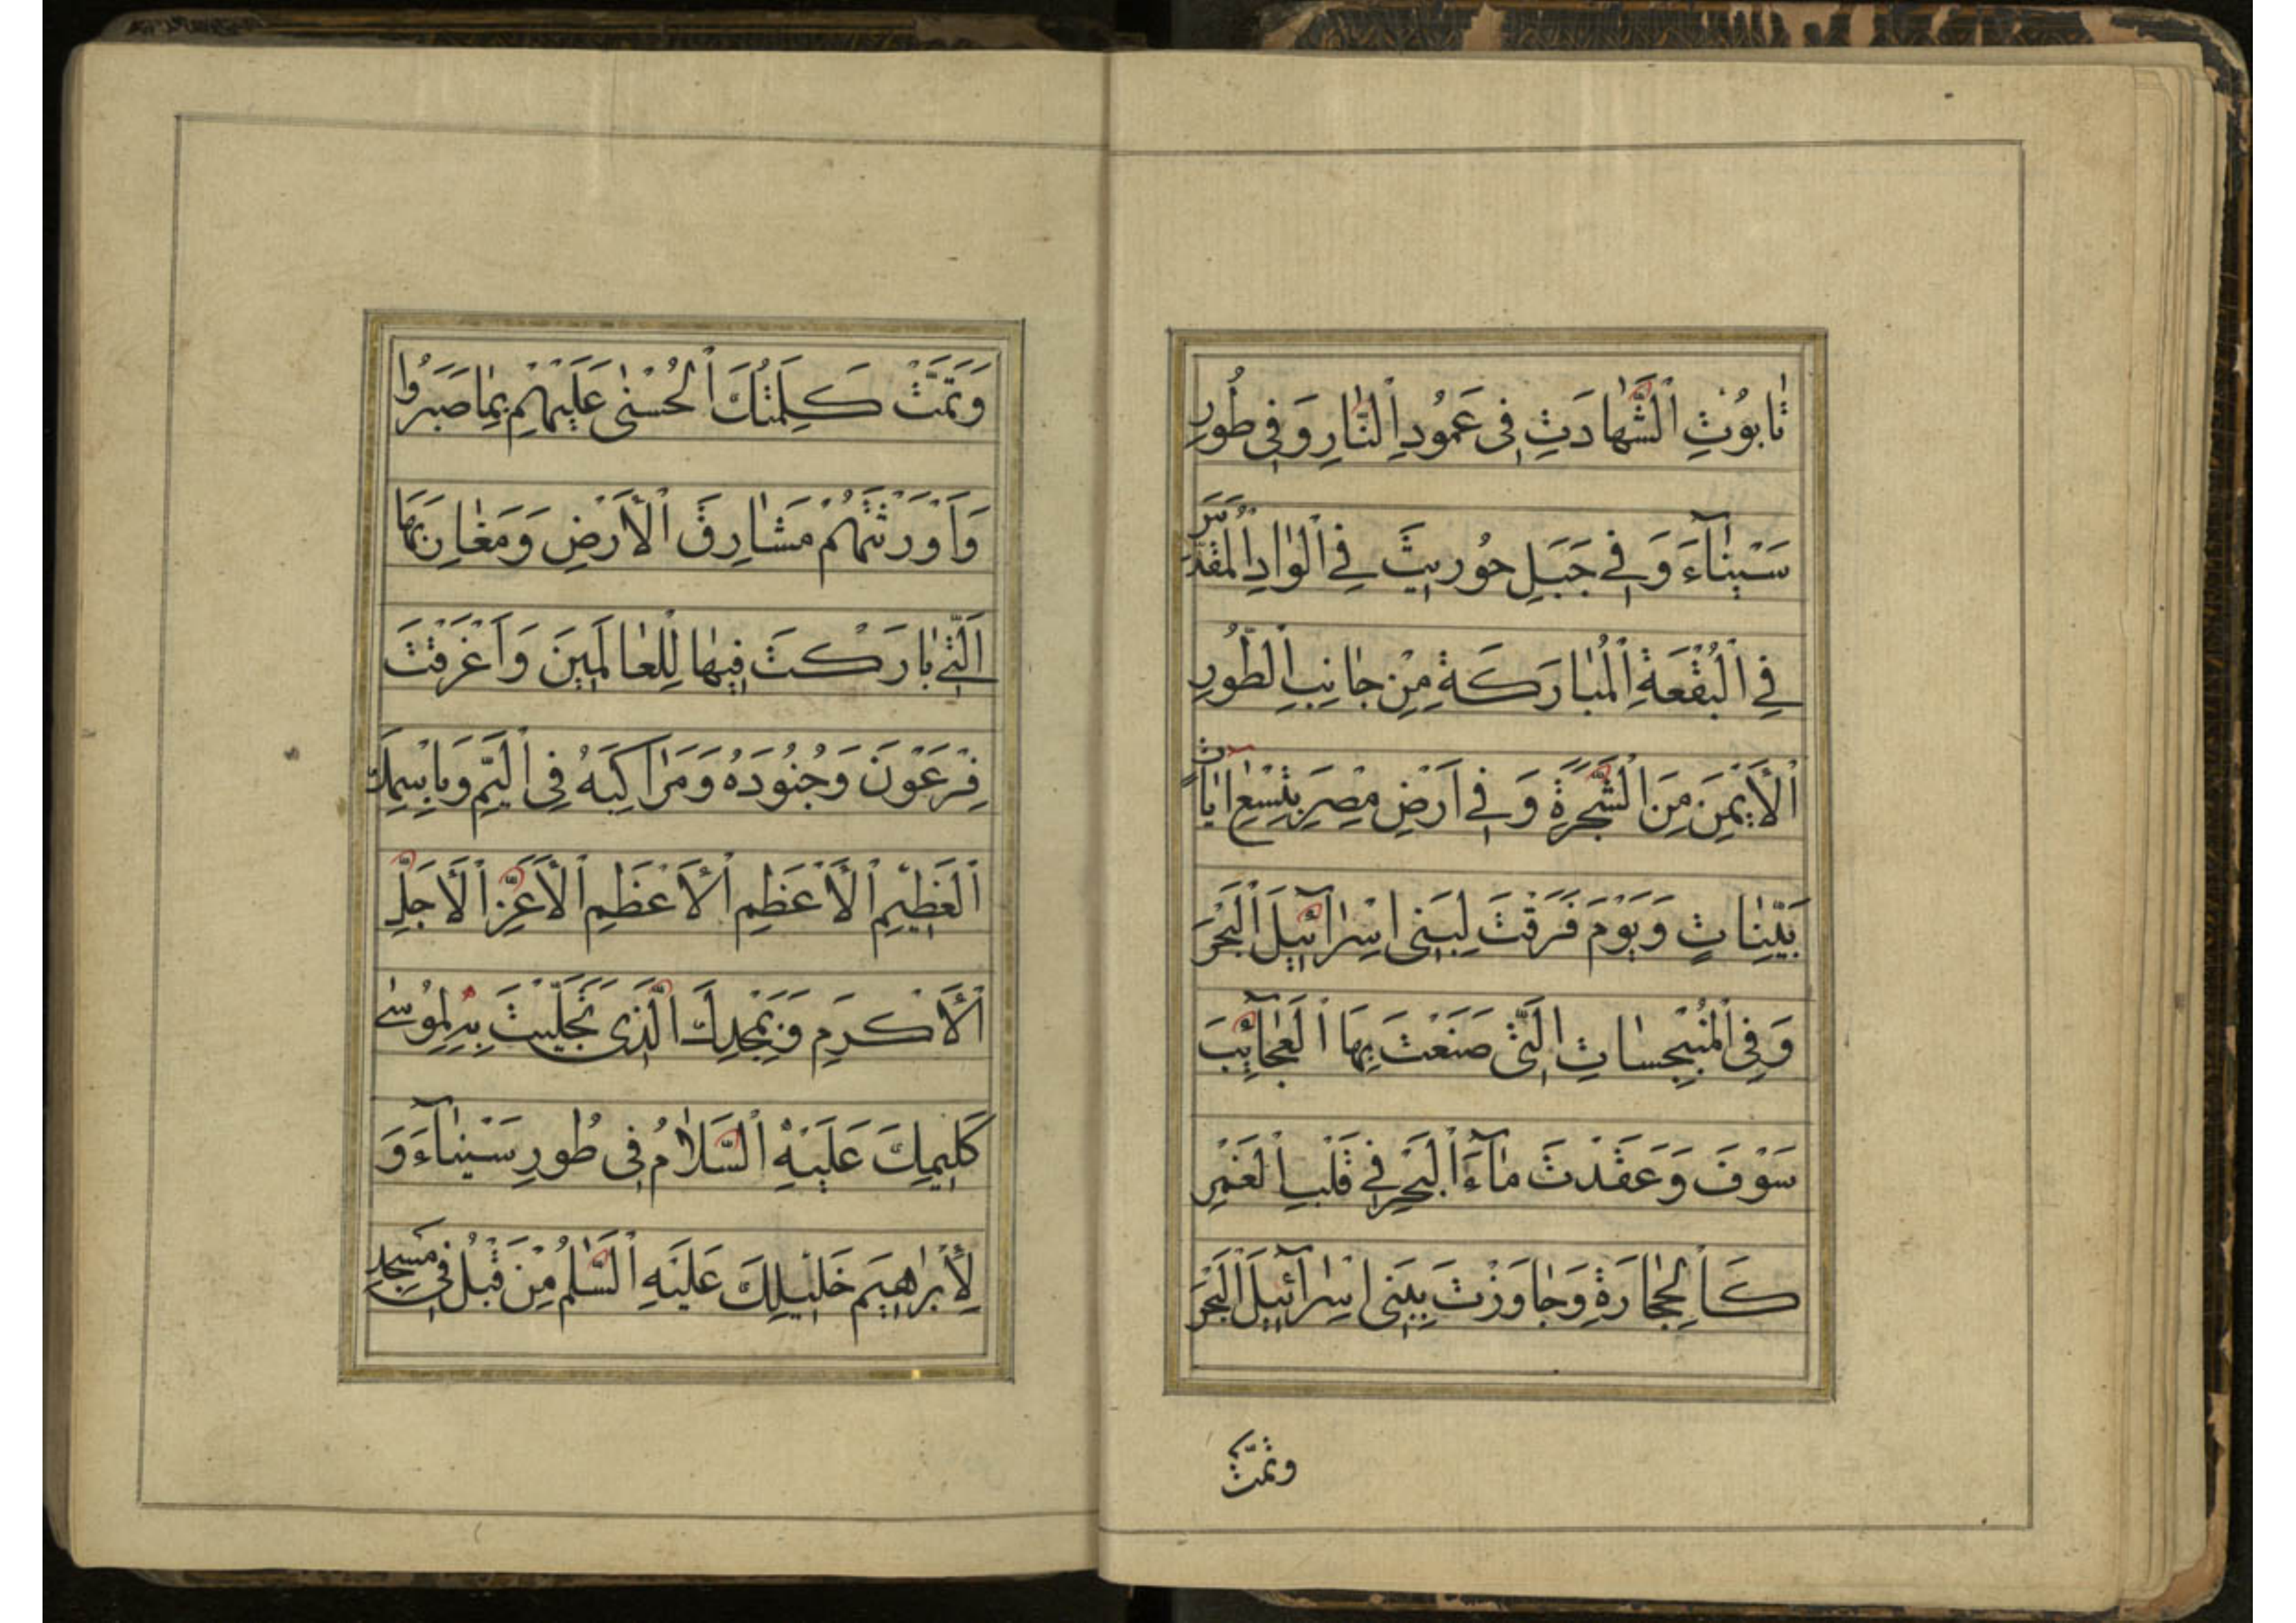 تَابُوتِ ٱلشَّهَادَتِ فِى عَمُودِ ٱلنَّارِ وَفِى طُورِ
سَيْنَآءَ وَفِى جَبَلِ حُورِيثَ فِى ٱلْوَادِ ٱلْمُقَدَّسِ
فِى ٱلْبُقْعَةِ ٱلْمُبَارَكَةِ مِنْ جَانِبِ ٱلطُّورِ
ٱلْأَيْمَنِ مِنَ ٱلشَّجَرَةِ وَفِى اَرْضِ مِصْرَ بِتِسْعِ اٰيَاتٍ
بَيِّنَاتٍ وَيَوْمَ فَرَقْتَ لِبَنِى اِسْرَآئِيلَ ٱلْبَحْرَ
وَفِى ٱلْمُنْبَجِسَاتِ ٱلَّتِى صَنَعْتَ بِهَا ٱلْعَجَآئِبَ
سَوْفَ وَعَقَدْتَ مَآءَ ٱلْبَحْرِ فِى قَلْبِ ٱلْغَمْرِ
كَٱلْحِجَارَةِ وَجَاوَزْتَ بِبَنِى اِسْرَآئِيلَ ٱلْبَحْرَ
وتمّت
وَتَمَّتْ كَلِمَتُكَ ٱلْحُسْنٰى عَلَيْهِمْ بِمَا صَبَرُوا
وَاَوْرَثْتَهُمْ مَشَارِقَ ٱلْأَرْضِ وَمَغَارِبَهَا
اَلَّتِى بَارَكْتَ فِيهَا لِلْعَالَمِينَ وَاَغْرَقْتَ
فِرْعَوْنَ وَجُنُودَهُ وَمَرَاكِبَهُ فِى ٱلْيَمِّ وَبِاسْمِكَ
ٱلْعَظِيْمِ ٱلْأَعْظَمِ ٱلْأَعْظَمِ ٱلْأَعَزِّ ٱلْأَجَلِّ
ٱلْأَكْرَمِ وَبِمَجْدِكَ ٱلَّذِى تَجَلَّيْتَ بِهِ لِمُوسٰى
كَلِيمِكَ عَلَيْهِ ٱلسَّلَامُ فِى طُورِ سَيْنَآءَ وَ
لِأَبْرٰهِيمَ خَلِيْلِكَ عَلَيْهِ ٱلسَّلٰمُ مِنْ قَبْلُ فِى مَسْجِدِ